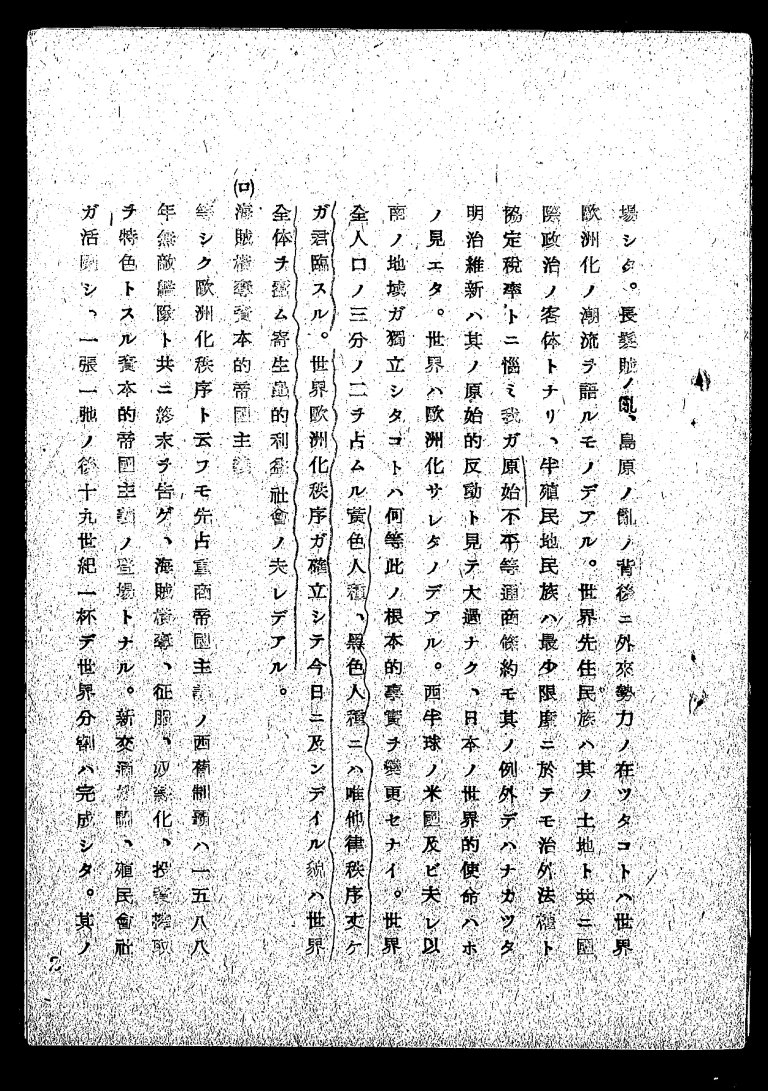 場シタ。長髮賊ノ亂、島原ノ亂ノ背後ニ外來勢力ノ在ツタコトハ世界
歐洲化ノ潮流ヲ語ルモノデアル。世界先住民族ハ其ノ土地ト共ニ國
際政治ノ客体トナリ、半殖民地民族ハ最少限度ニ於テモ治外法權ト
協定税率トニ惱ミ我ガ原始不平等通商條約モ其ノ例外デハナカツタ
明治維新ハ其ノ原始的反動ト見テ大過ナク、日本ノ世界的使命ハホ
ノ見エタ。世界ハ歐洲化サレタノデアル。西半球ノ米國及ビ夫レ以
南ノ地域ガ獨立シタコトハ何等此ノ根本的事實ヲ變更セナイ。世界
全人口ノ三分ノ二ヲ占ムル黄色人種、黑色人種ニハ唯他律秩序丈ケ
ガ君臨スル。世界歐洲化秩序ガ確立シテ今日ニ及ンデイル貌ハ世界
全体ヲ蝕ム寄生蟲的利益社會ノ夫レデアル。
(ロ)海賊掠奪資本的帝國主義
等シク歐洲化秩序ト云フモ先占重商帝國主義ノ西葡制覇ハ一五八八
年無敵艦隊ト共ニ終末ヲ告ゲ、海賊掠奪、征服、奴隸化、投資搾取
ヲ特色トスル資本的帝國主義ノ登場トナル。新交通機關、殖民會社
ガ活躍シ、一張一弛ノ後十九世紀一杯デ世界分割ハ完成シタ。其ノ
2